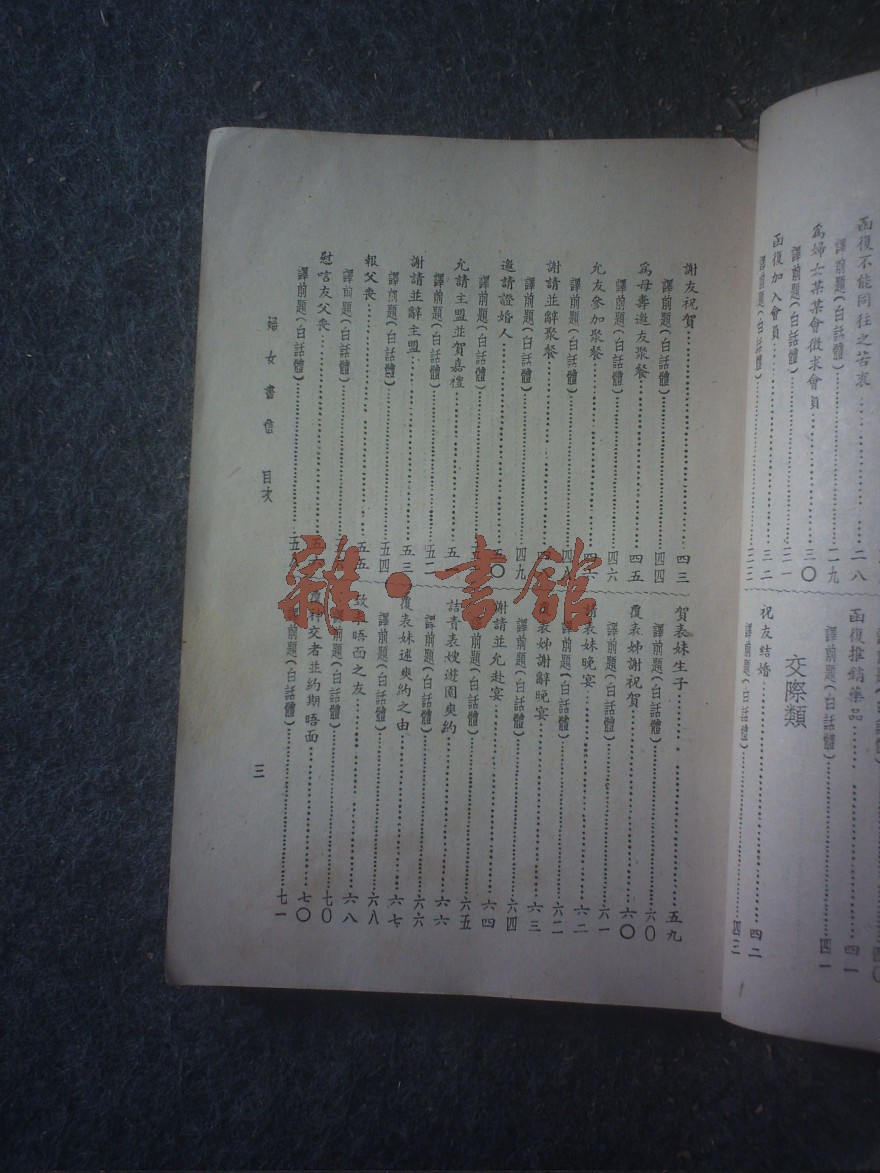 函復不能同往之苦衷……二八
譯前題(白話體)……二九
為婦女某某會徵求會員……三〇
譯前題(白話體)……三一
函復加入會員……三二
譯前題(白話體)……三三
函復推銷藥品……四一
譯前題(白話體)……四一
交際類
祝友結婚……四二
譯前題(白話體)……四三
謝友祝賀……四三
譯前題(白話體)……四四
為母壽邀友聚餐……四五
譯前題(白話體)……四六
允友參加聚餐……四六
譯前題(白話體)……四八
謝請並辭聚餐……
譯前題(白話體)……四九
邀請證婚人……五〇
譯前題(白話體)……
允請主盟並賀嘉禮……五一
譯前題(白話體)……五二
謝請並辭主盟……五三
譯前題(白話體)……五四
報父喪……五五
譯前題(白話體)……
慰唁友父喪……
譯前題(白話體)……
賀表妹生子……五九
譯前題(白話體)……六〇
覆表姊謝祝賀……六〇
譯前題(白話體)……六一
表妹晚宴……六二
譯前題(白話體)……六二
表姊謝辭晚宴……六三
譯前題(白話體)……六四
謝請並允赴宴……六四
譯前題(白話體)……六五
詰責表嫂遊園爽約……六六
譯前題(白話體)……六六
覆表妹述爽約之由……六七
譯前題(白話體)……六八
致未晤面之友……六八
譯前題(白話體)……七〇
覆神交者並約期晤面……七〇
譯前題(白話體)……七一
婦女書信 目次
三
雜·書館